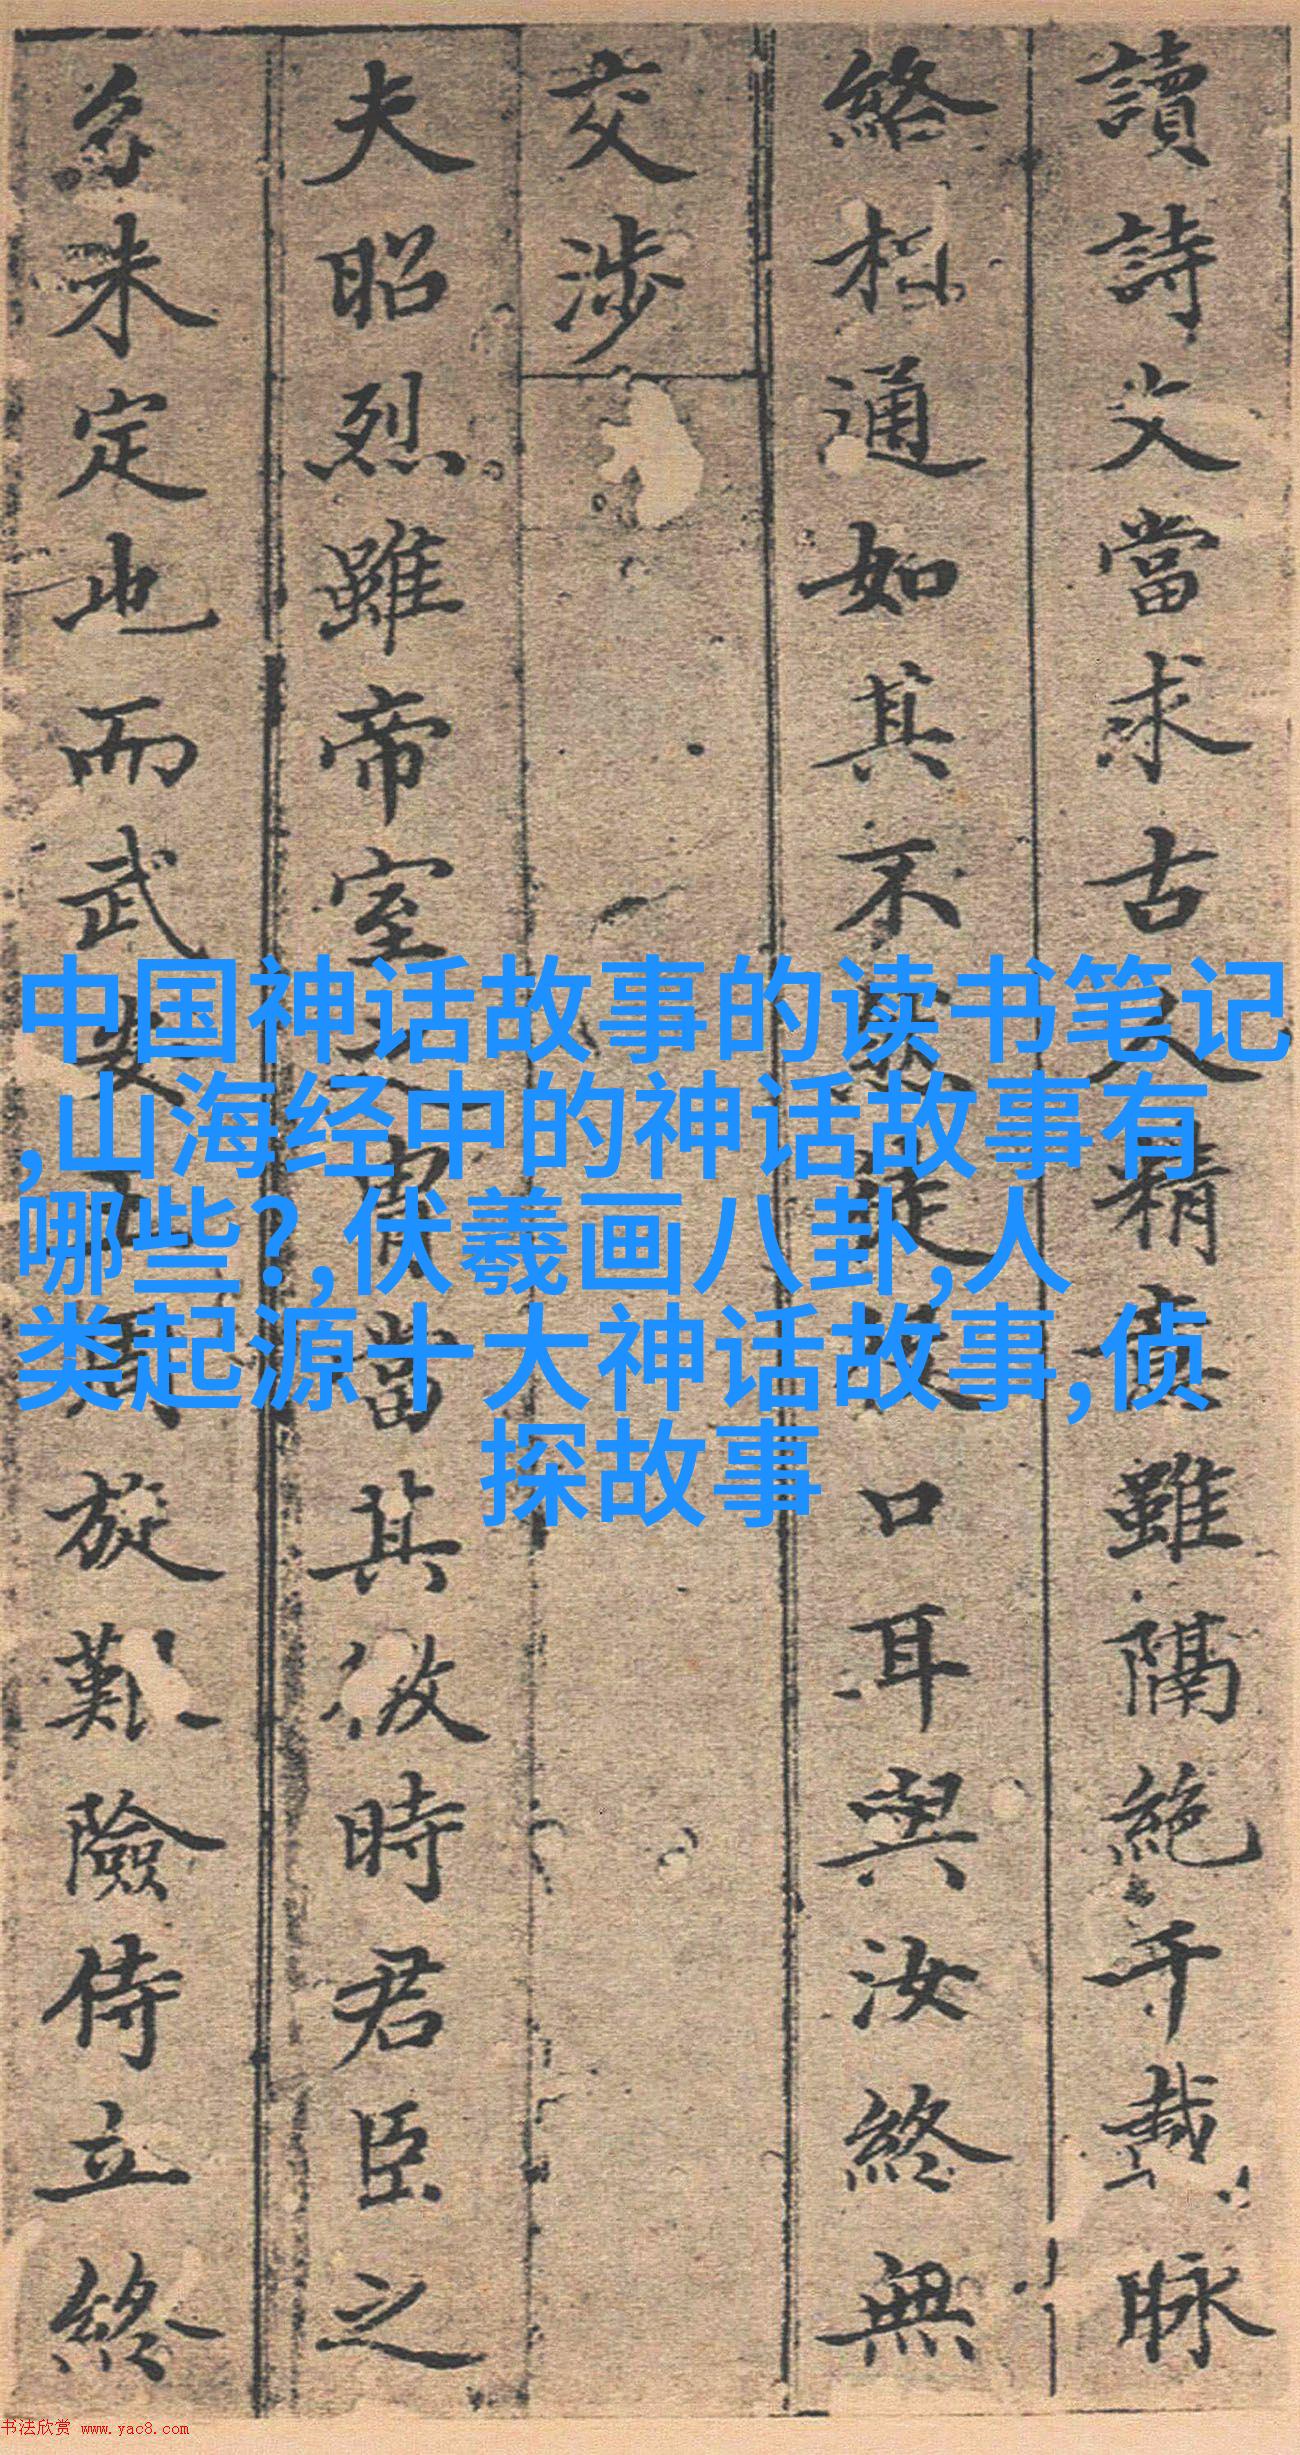 讀詩文當求古人精真雖隔絶千載脉
絡相通如其不口耳與汝終無
交涉
夫昭烈雖帝室之胄當其微時君臣之
分未定也而武安王周旋艱險侍立終
中国神话故事的读书笔记
,山海经中的神话故事有
哪些?,伏羲画八卦,人
类起源十大神话故事,侦
探故事
书法欣赏 www.yac8.com